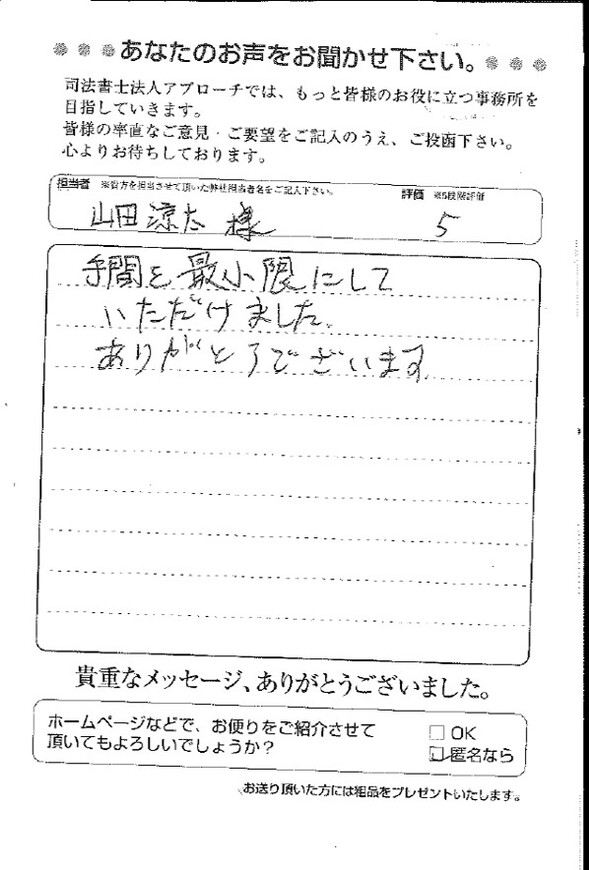 あなたのお声をお聞かせ下さい。
司法書士法人アプローチでは、もっと皆様のお役に立つ事務所を
目指していきます。
皆様の率直なご意見・ご要望をご記入のうえ、ご投函下さい。
心よりお待ちしております。
担当者 ※貴方を担当させて頂いた弊社担当者名をご記入下さい。 評価 ※5段階評価
山田涼太 様 5
手間を最小限にして
いただけました。
ありがとうございます
貴重なメッセージ、ありがとうございました。
ホームページなどで、お便りをご紹介させて
頂いてもよろしいでしょうか?
OK
匿名なら
お送り頂いた方には粗品をプレゼントいたします。